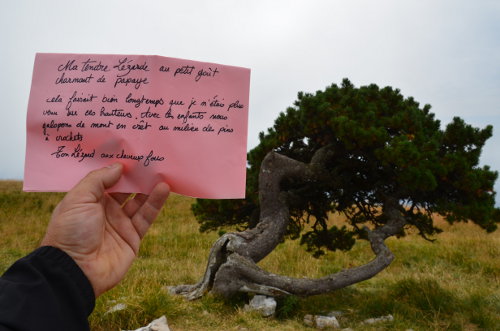 Ma tendre Lézarde au petit goût
charmant de papaye
cela faisait bien longtemps que je n'étais plus
venu sur ces hauteurs. Avec les enfants nous
galopons de mont en crêt au milieu de pins
à crochets.
Ton Lézard aux cheveux fous